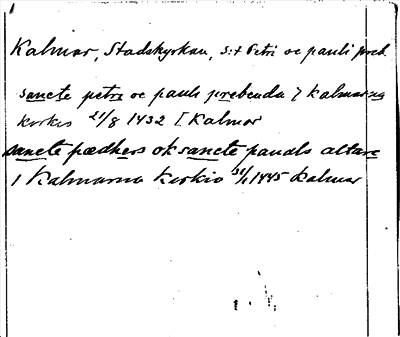 Kalmar, Stadskyrkan, S:t Petri oc pauli preb.
sancte petrs oc pauls prebenda j kalmarna
kirkio 21/8 1432 i. Kalmar
sancte pædhers ok sancte pauals altare
i Kalmarna kirkio 31/1 1445 Kalmar